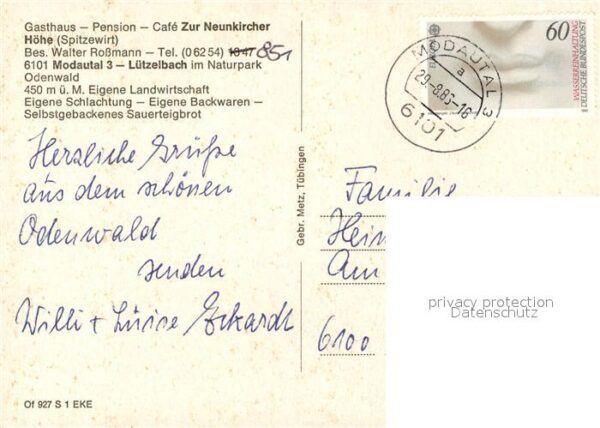 Gasthaus – Pension – Café Zur Neunkircher
Höhe (Spitzewirt)
Bes. Walter Roßmann – Tel. (0 62 54) 18 47 851
6101 Modautal 3 – Lützelbach im Naturpark
Odenwald
450 m ü. M. Eigene Landwirtschaft
Eigene Schlachtung – Eigene Backwaren –
Selbstgebackenes Sauerteigbrot
Herzliche Grüße
aus dem schönen
Odenwald
senden
Willi + Luise Eckardt
Of 927 S 1 EKE
Gebr. Metz, Tübingen
60
WASSERREINHALTUNG
DEUTSCHE BUNDESPOST
MODAUTAL 3
a
6101
Familie
Hein
Am
6100
privacy protection
Datenschutz